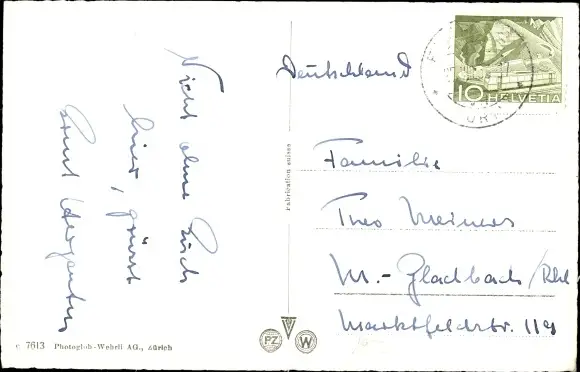 Nicht ohne Euch
hier, grüsst
Deutschland
10 HELVETIA
URI
Fabrication suisse
Familie
Theo Meiners
M.-Gladbach/Rhl
Marktfeldstr. 119
c 7613 Photoglob-Wehrli AG., Zürich
PZ W